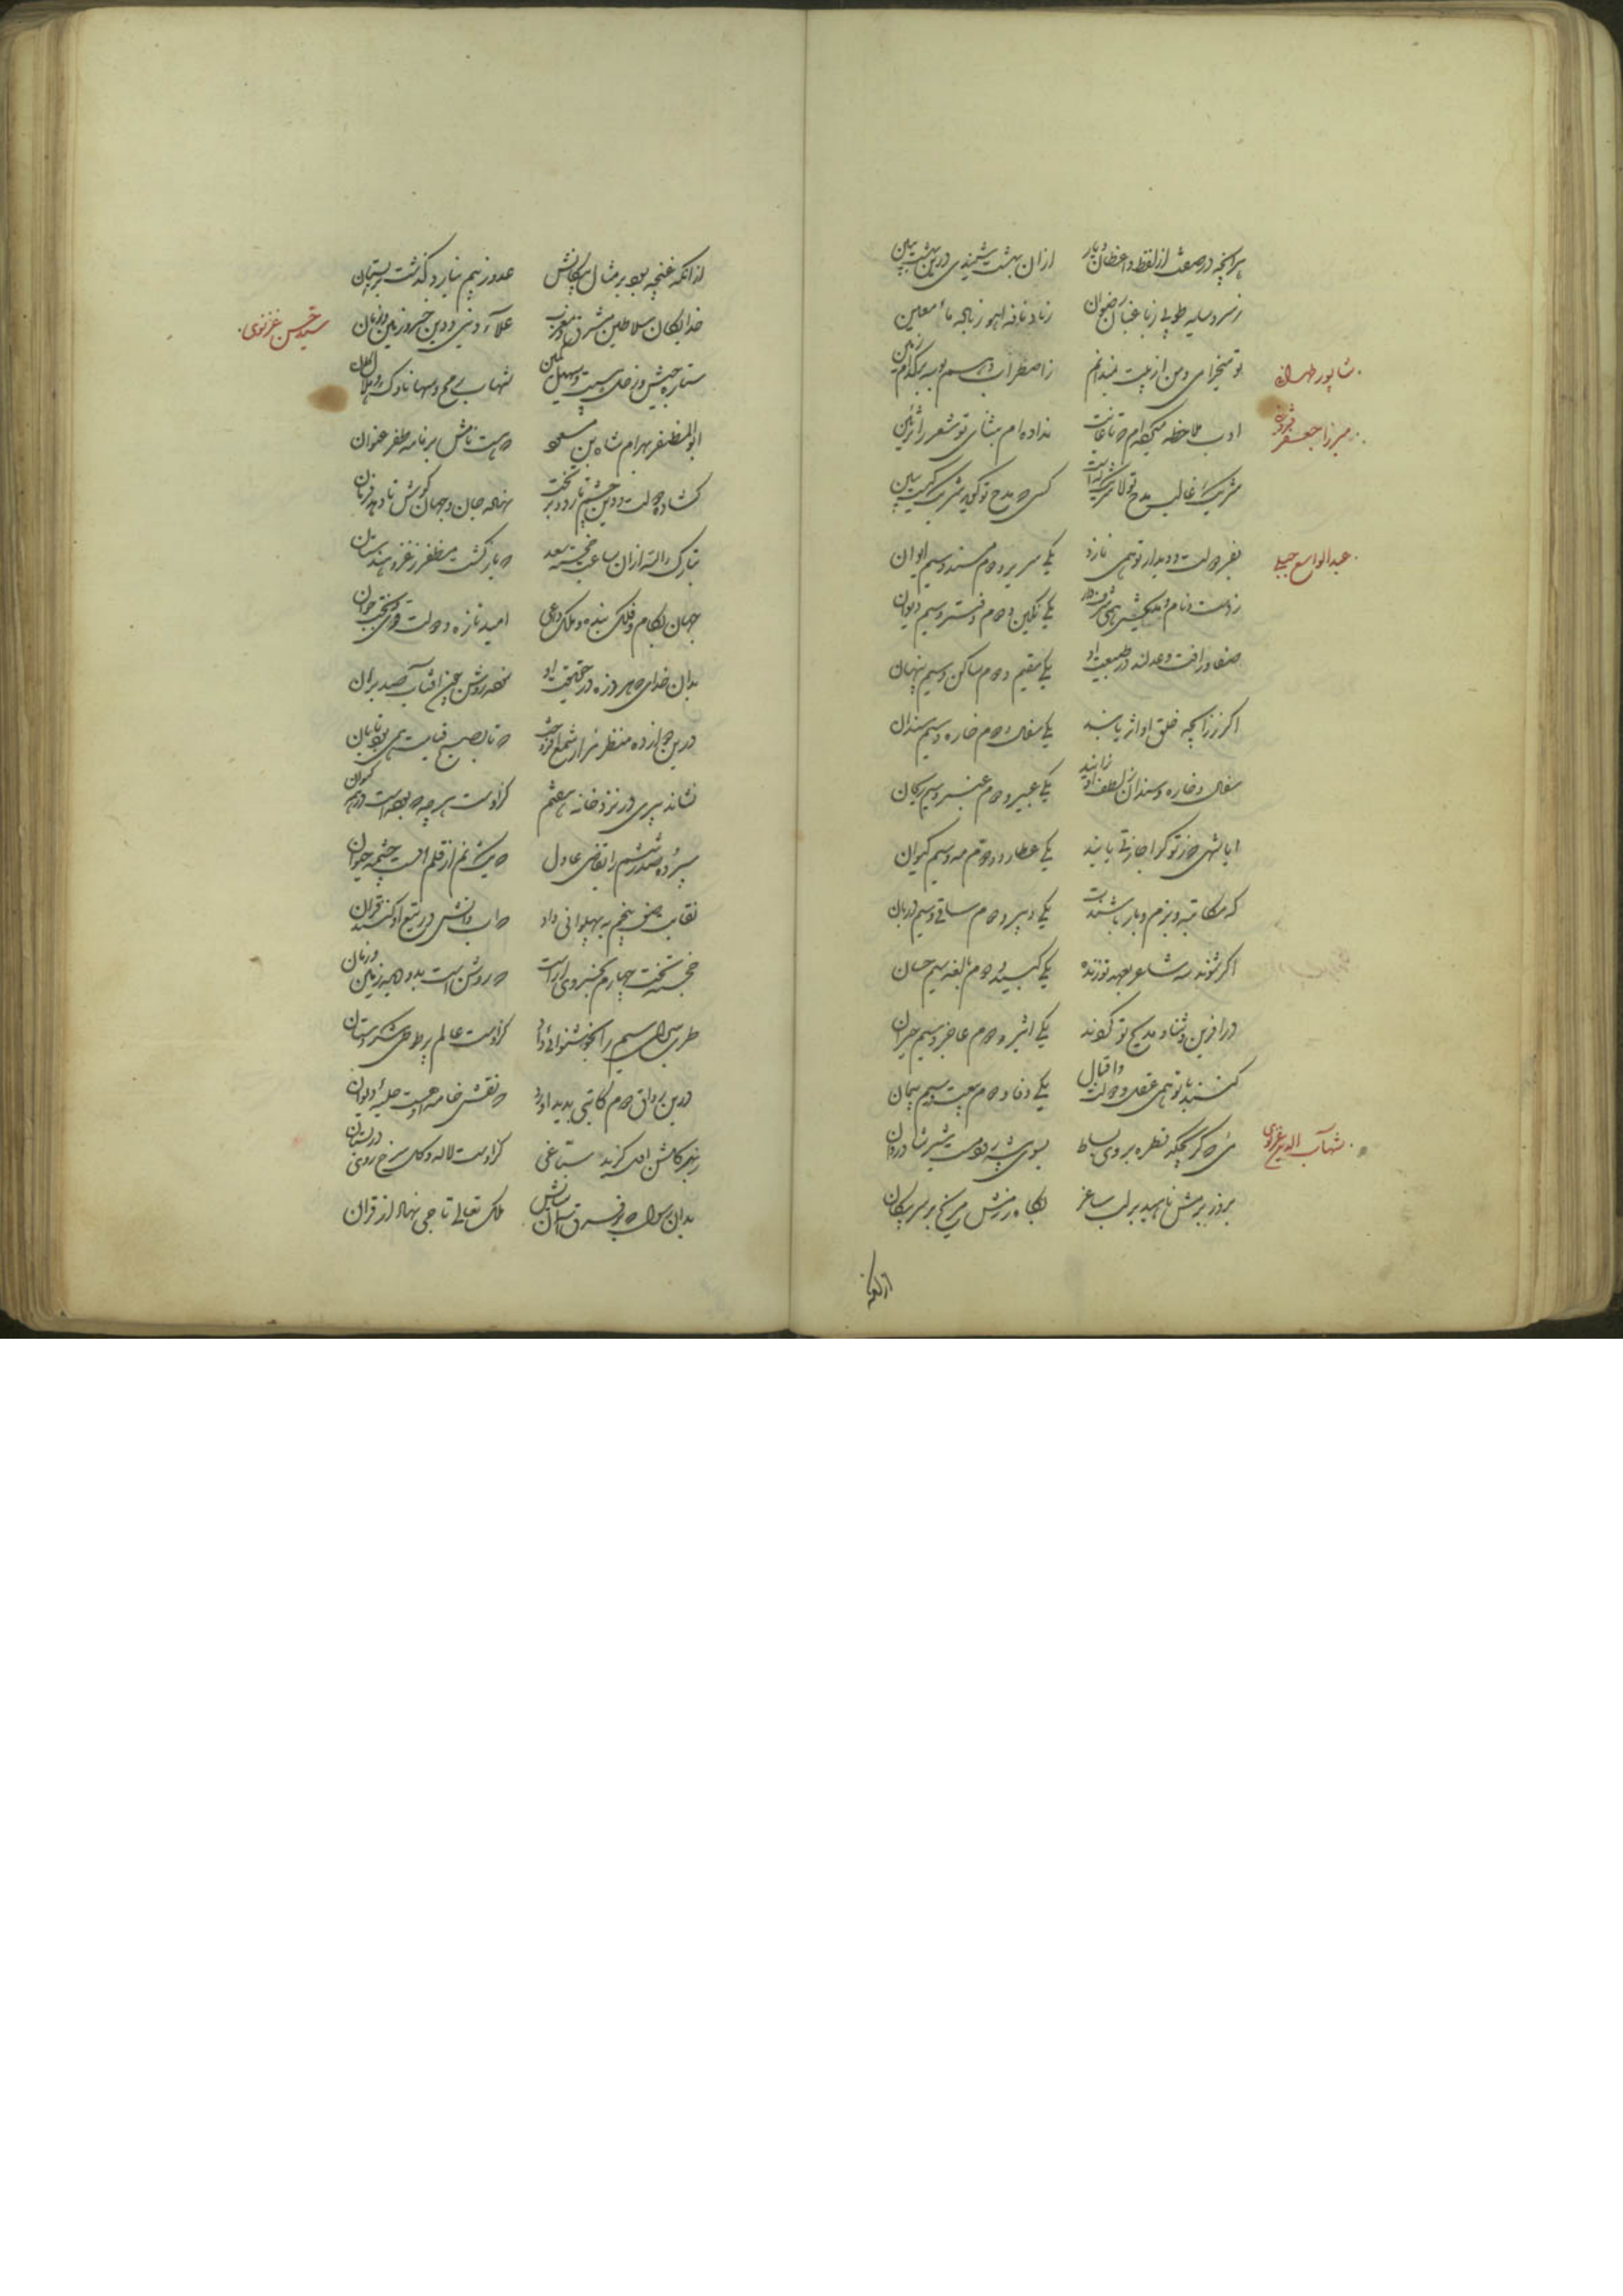 هر آنچه در صفت از لفظ واعظان دیار ازان بهشت شنیدی درین بهشت ببین
ز سرو سایه طوبی ز باغبان رضوان ز ناف آهو ز ماء معین
شاپور طهرانی
تو میخرامی و من از پیت نمیدانم ز اضطراب که بوسه بر کدام زمین
میرزا جعفر قزوینی
ادب ملاحظه میکرده‌ام که تا غایت نداده‌ام بثنای تو شعر را تزیین
شریک غالب مدح تو لا شریک له است کسی که مدح تو گوید شریک کیست ببین
عبدالواسع جبلی
بفر دولت و دیدار تو همی نازد یکی سریر و دوم مسند و سیم ایوان
ز دست و نام یکی نگین و دوم دفتر و سیم دیوان
صفا و رافت و عدلند در طبیعت او یکی مقیم و دوم ساکن و سیم پنهان
اگر ز رایحه خلق او اثر یابند یکی سفال و دوم خاره و سیم سندان
سفال و خاره و سندان ز لطف او نمایند یکی عبیر و دوم عنبر و سیم ریحان
ایا شهی که ز تو گر اجازتی یابند یکی عطارد و دوم مه و سیم کیوان
گه مکاتبه و بزم و بار باشندت یکی دبیر و دوم ساقی و سیم دربان
اگر شوند سه شاعر بعهد تو زنده یکی لبید و دوم نابغه سیم حسان
در آفرین و ثنا و مدیح تو گردند یکی اثیر و دوم عاجز و سیم حیران
کنند با تو همی عقل و دولت و اقبال یکی وفا و دوم بیعت و سیم پیمان
شهاب الدین غزنوی
می که گر بچکد قطره بروی بساط بسوی بیشه رود مست شیر شادروان
بروز بزمش ناهید بر لب ساغر بگاه رزمش مریخ بر سر پیکان
از آنکه
از آنکه غنچه بود بر مثال پیکانش عدو ز بیم نیارد گذشت بر بستان
سید حسن غزنوی
خدایگان سلاطین مشرق و مغرب علاء دنیی و دین خسرو زمین و زمان
ستاره جیش و زحل شهاب رمح و سها ناوک و هلال کمان
ابوالمظفر بهرام شاه بن مسعود که هست نامش بر نامه ظفر عنوان
گشاده دولت و دین چشم تا رود بر تخت نهاده جان و جهان گوش تا دهد فرمان
تبارک الله ازان ساعت خجسته سعد که باز گشت مظفر ز غزو هندستان
جهان بکام و فلک بنده و ملک داعی امید تازه و دولت قوی و بخت جوان
بدان خدای که هر ذره در حقیقت او نمود روشن عین آفتاب صد برهان
درین دوازده منظر هزار شمع افروخت که تا بصبح قیامت همی بود تابان
نشاند پیری در نزد خانه هفتم کزوست هر چه که بوده است در همه کیهان
سپرد صدر ششم را بقاضی عادل که میکند نم از قلم اوست چشمه حیوان
نقابت صف پنجم به پهلوانی داد که آب و آتش در تیغ او کنند قران
خجسته تخت چهارم بخسروی آراست که روشن است بدو همه زمین و زمان
طربسرای سیم را بخوشنوائی داد کزوست عالم پر طوطی شکرستان
درین رواق دوم کاتبی پدید آورد که نقش خامه اوست حلیه دیوان
بر کلشن اول گزید صباغی کزوست لاله و گل سرخ روی در بستان
بدان رسول که بر فرق آسمان سایش ملک تعالی تاجی نهاد از قرآن